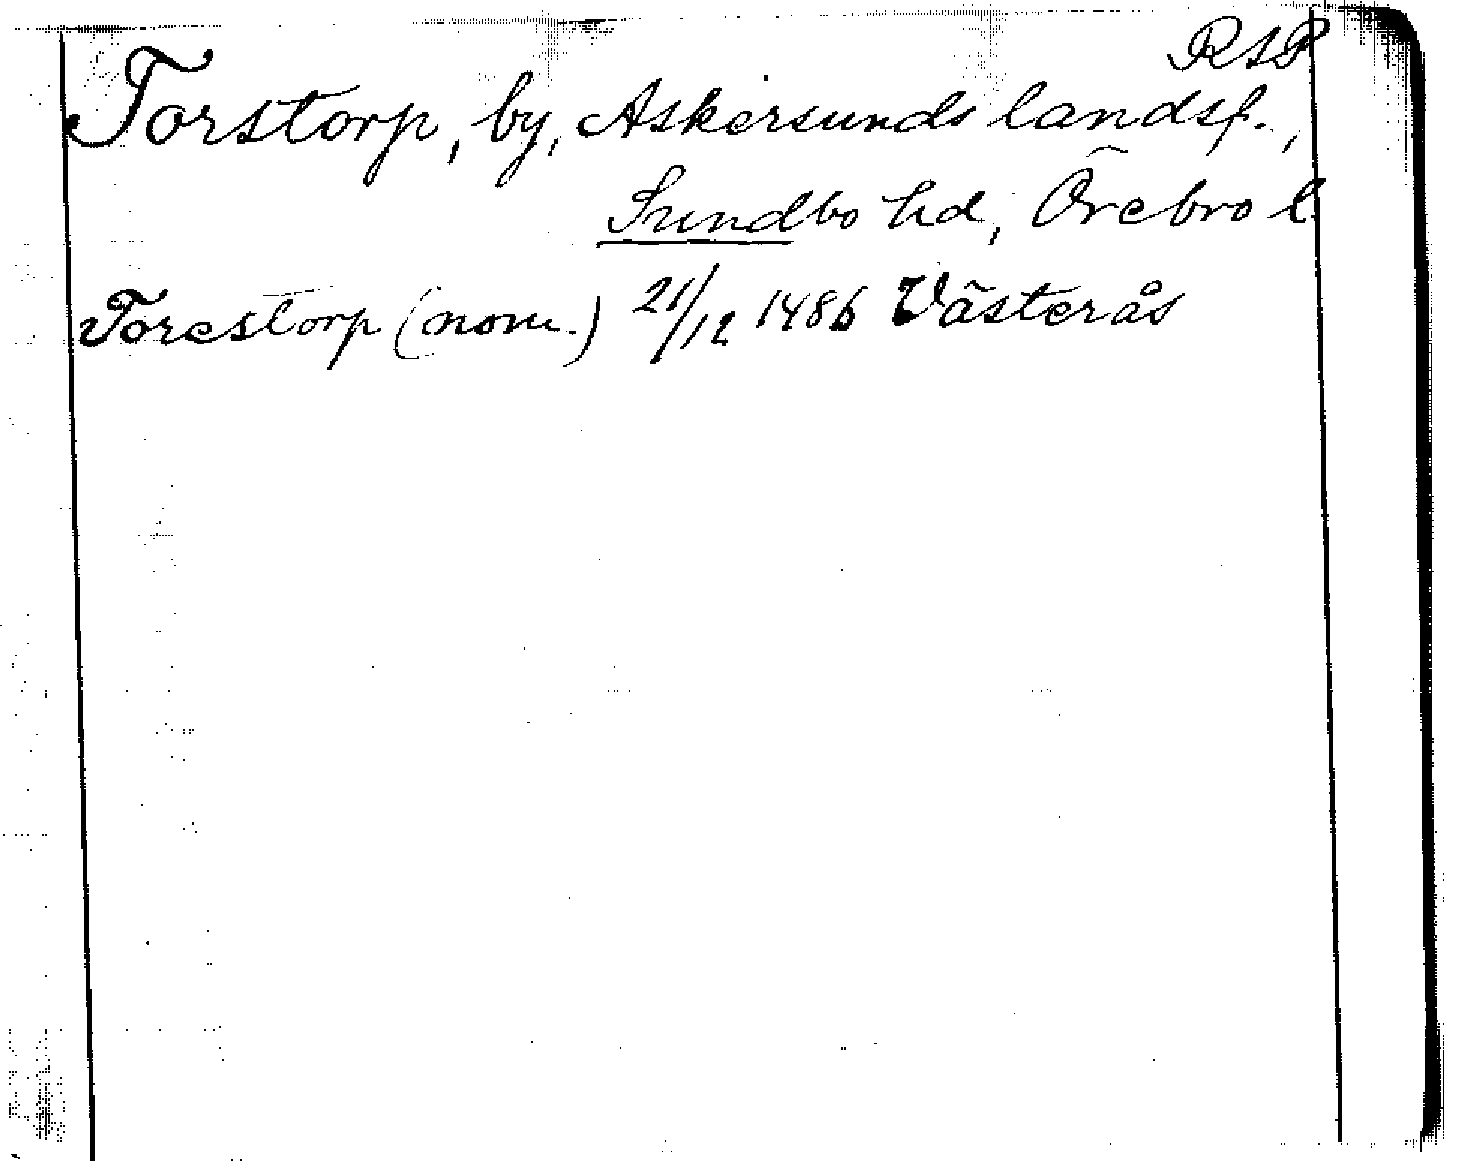 RSP
Torstorp, by, Askersunds landsf.,
Sundbo hd, Örebro l
Torestorp (nom.) 21/12 1486 Västerås